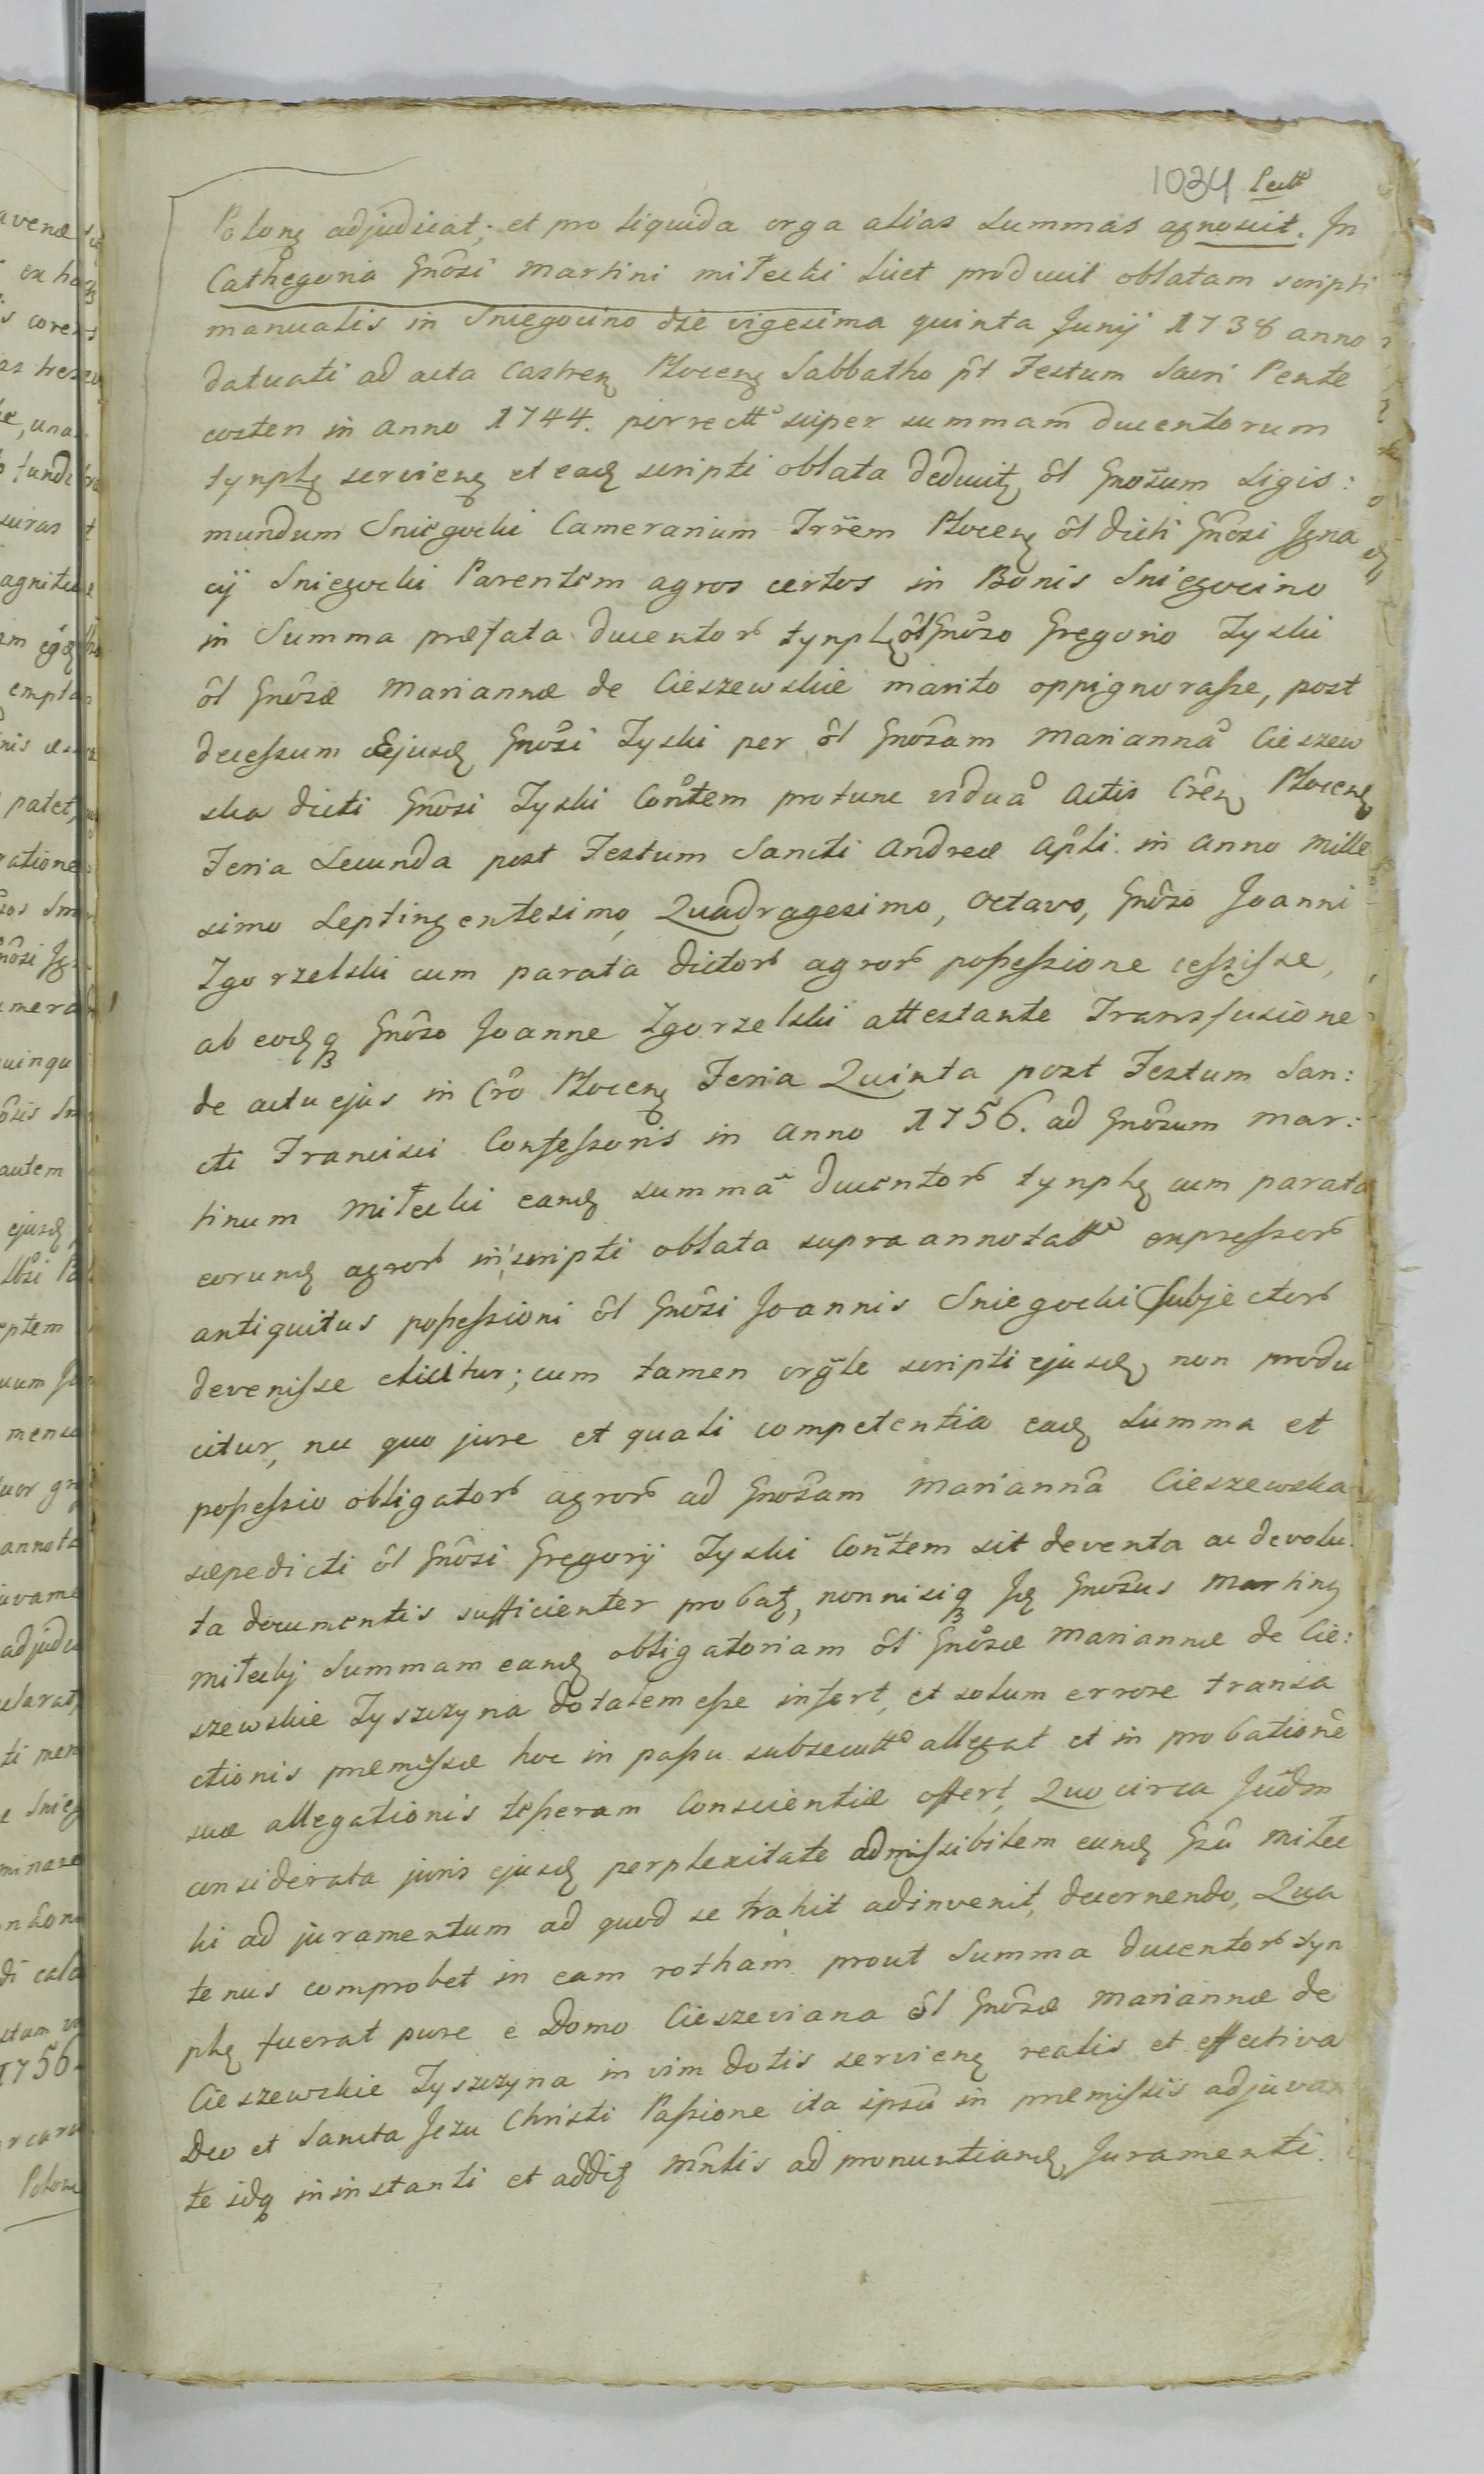 1034 Lectt
Polonę adjudicat; et pro liquida erga alias Summas agnovit. In
Cathegoria Gnôsi Martini Miłecki licet producit oblatam scripti
manualis in Sniegocino die vigesima quinta Junij 1738 anno
datuati ad acta Castrenę Plocenę Sabbatho pt Festum Sacri Pente
costen in anno 1744. porrectt super summam ducentorum
tynphę servienę et eadę scripti oblata deducitę ôl Gnôsum Sigis:
mundum Sniegocki Camerarium Trrem Plocenę ôl dicti Gnôsi Igna
cij Sniegocki Parentem agros certos in Bonis Sniegocino
in Summa præfata ducentor tynphę ôl Gnôso Gregorio Zyski
ôl Gnôsæ Mariannæ de Cieszewskie marito oppignorasse, post
decessum Ejusdę Gnôsi Zyski per ôl Gnôsam Marianna Cieszew
ska dicti Gnôsi Zyski Contem protunc vidua Actis Crên Plocenę
Feria Secunda post Festum Sancti Andreæ Apli in anno Mille
simo Septingentesimo, Quadragesimo, Octavo, Gnôso Joanni
Zgorzelski cum parata dictor agror possessione cessisse,
ab eodęq Gnôso Joanne Zgorzelski attestante Transfusione
de actu ejus in Cro Plocenę Feria Quinta post Festum San:
cti Francisci Confessoris in Anno 1756. ad Gnôsum Mar:
tinum Miłecki eandę summa ducentor tynphę cum parata
eorundę agror in scripti oblata supra annotatt expressor
antiquitus possessioni ôl Gnôsi Joannis Sniegocki Subjector
devenisse elicitur; cum tamen orgle scripti ejusdę non produ
citur, nec quo jure et quali competentia eadę Summa et
possessio obligator agror ad Gnôsam Marianna Cieszewska
sæpedicti ôl Gnôsi Gregorij Zyski Contem sit deventa ac devolu
ta documentis sufficienter probatę, nonnisiq Idę Gnôsus Martinę
Miłeckj Summam eandę obligatoriam ôl Gnôsæ Mariannæ de Cie:
szewskie Zyszczyna dotalem esse infert, et solum errore transa
ctionis præmissæ hoc in passu subsecutt allegat et in probatione
suæ allegationis tesseram Conscientiæ offert, Quocirca Judm
considerata juris ejusdę perplexitate admissibilem eundę Gsu Miłec
ki ad juramentum ad quod se trahit adinvenit, decernendo, Qua
tenus comprobet in eam rotham prout Summa ducentor tyn
phę fuerat pure e Domo Cieszeviana ôl Gnôsæ Mariannæ de
Cieszewskie Zyszczyna in vim dotis servienę realis et effectiva
Deo et Sancta Jezu Christi Passione ita ipsu in præmissis adjuvan
te idq in instanti et addię Mntis ad pronuntiandę Juramenti.